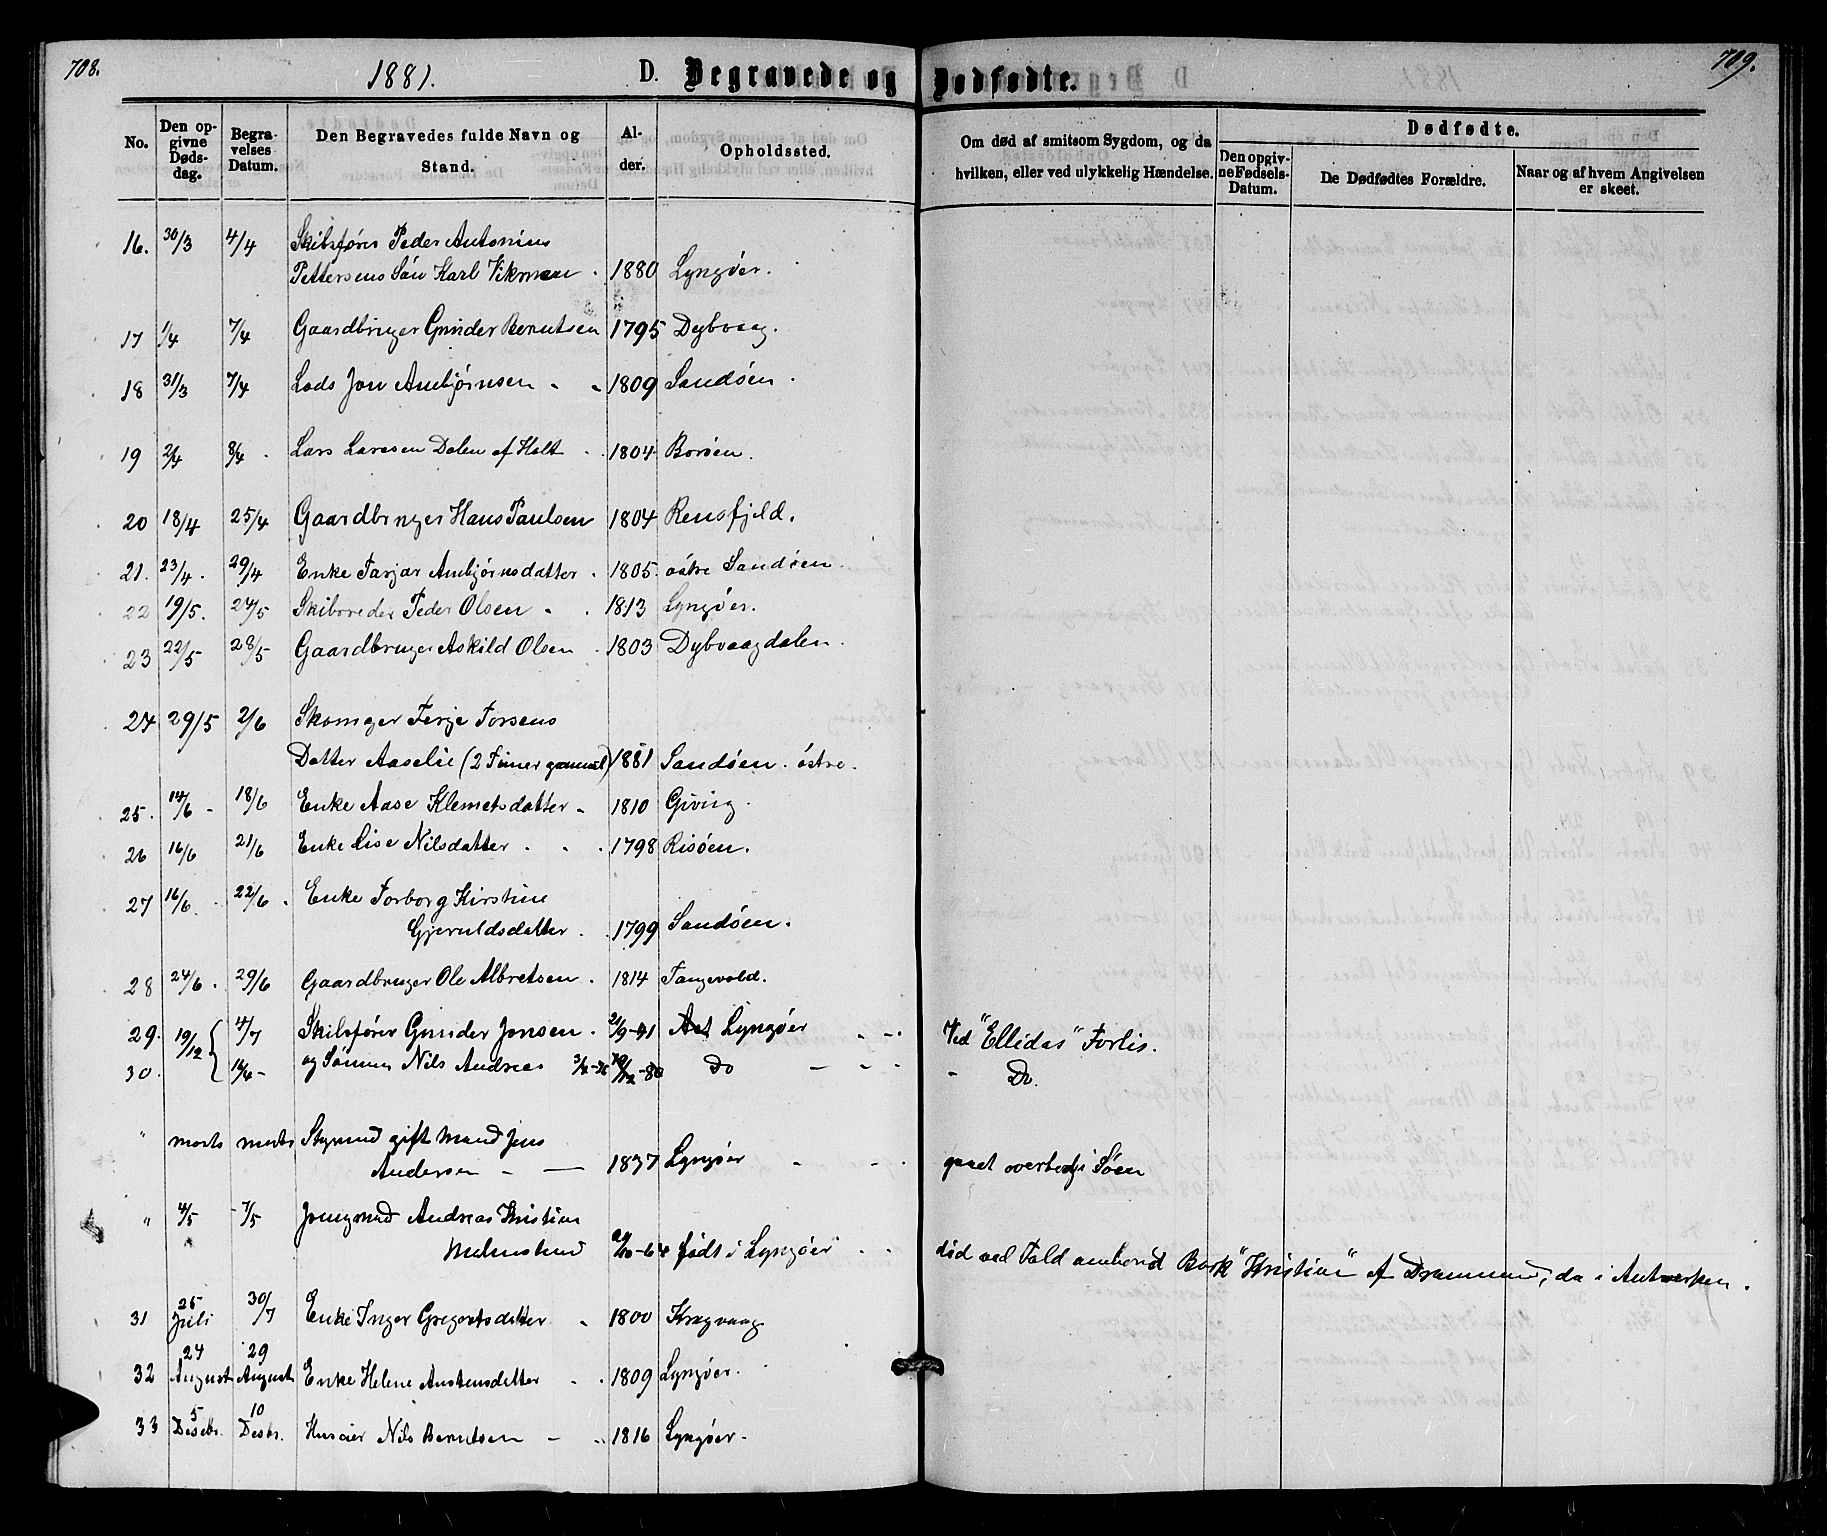 708.
1881.
D. Begravede og Dødfødte.
709.
No.
Den opgivne Dødsdag.
Begravelses Datum.
Den Begravedes fulde Navn og Stand.
Alder.
Opholdssted.
Om død af smitsom Sygdom, og da hvilken, eller ved ulykkelig Hændelse.
Dødfødte.
Den opgivne Fødsels-Datum.
De Dødfødtes Forældre.
Naar og af hvem Angivelsen er skeet.
16. 30/3 4/4 Skibsfører Peder Antonius
Pettersens Søn Karl Vikman 1880 Lyngøer.
17 1/4 7/4 Gaardbruger Gunder Berntsen 1795 Dybvaag.
18 31/3 7/4 Lods Jon Ambjørnsen - - 1809 Sandøen.
19 2/4 8/4 Lars Larssen Dalen af Holt 1804 Borøen.
20 18/4 25/4 Gaardbruger Hans Paulsen 1804 Rensfjeld.
21. 23/4. 29/4 Enke Tarjar Ambjørnsdatter 1805. østre Sandøen.
22 19/5. 24/5 Skibsreder Peder Olsen - 1813 Lyngøer.
23 22/5 28/5 Gaardbruger Askild Olsen 1803 Dybvaagdalen.
24 29/5 2/6 Skomager Terje Torsens
Datter Aaselie (2 Timer gammel) 1881 Sandøen. østre.
25. 14/6 - 18/6 Enke Aase Klemetsdatter - 1810 Giving.
26 16/6 21/6 Enke Lise Nilsdatter 1798 Risøen.
27 16/6. 22/6. Enke Torborg Kirstine
Gjeruldsdatter 1799 Sandøen.
28 24/6. 29/6 Gaardbruger Ole Albretsen. 1814 Tangevold.
29. 19/12 4/7 Skibsfører Gunder Jensen. 21/9-41 Lyngøer - -. Ved "Ellidas" Forlis.
30. 16/4- og Sønnen Nils Andreas -80 Do - - - - Do.
" marts marts Styrmd gift Mand Jens
Andersen - — 1837 Lyngøer - - . gaaet overbord i Søen
" 4/5 - 7/5 Jungmd Andreas Kristian
-64 født i Lyngøer . . død ved Fald ombord Bark "Kristine" af Drammen, da i Antwerpen.
31 25 Juli 30/7 Enke Inger Gregertsdatter - 1800 Kragvaag
32 24 August 29 August Enke Helene Anstensdatter - . 1809 Lyngøer.
33 5 Desebr. 10 Desbr. Huseier Nils Berntsen - - 1816 Lyngøer-